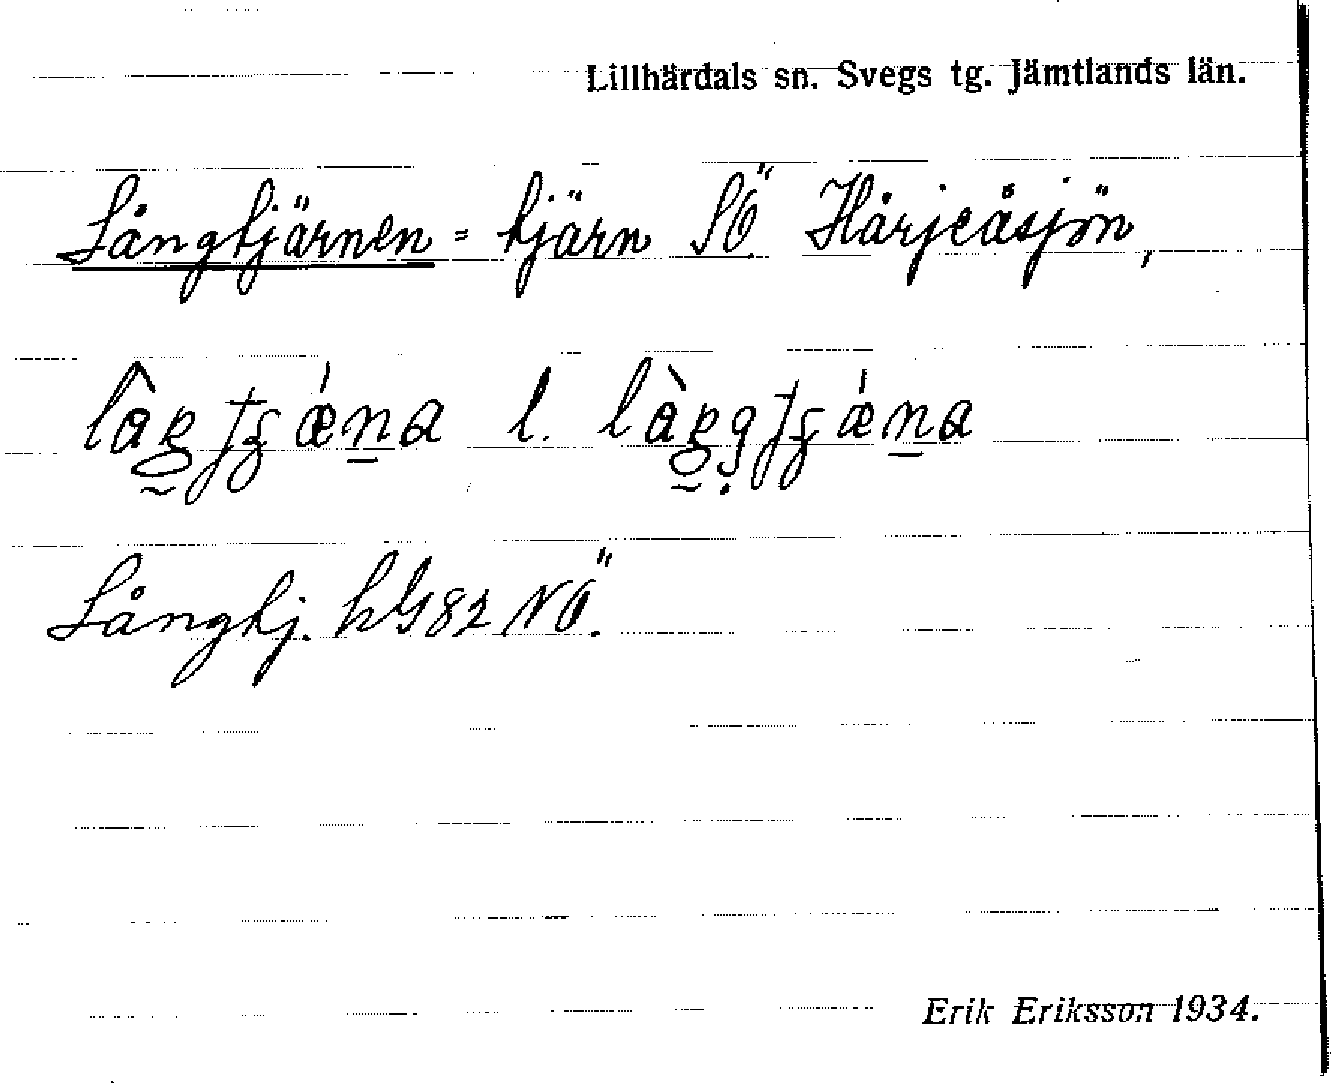 Lillhärdals sn. Svegs tg. Jämtlands län.
Långtjärnen = tjärn SÖ. Härjeåsjön,
l. 
Långtj. hG82 NÖ.
Erik Eriksson 1934.